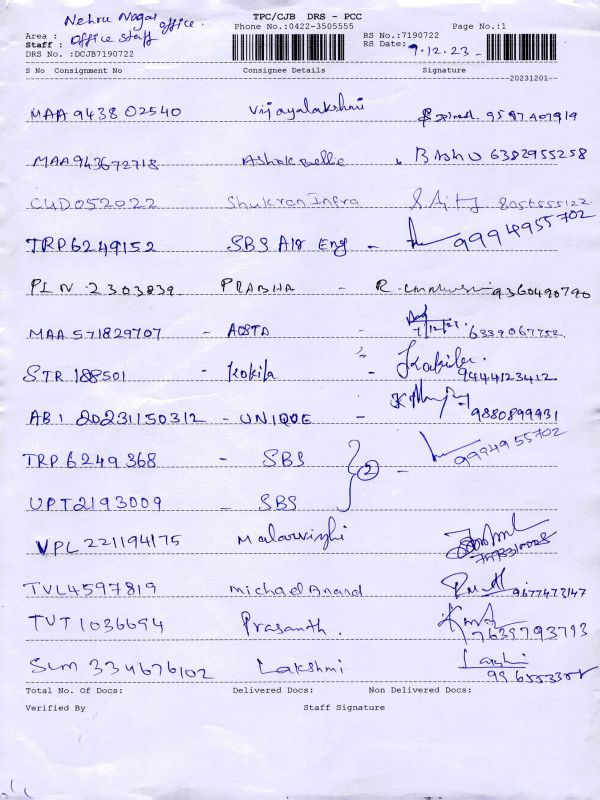 Nehru Nagar office.
office staff
TPC/CJB DRS - PCC
Phone No.:0422-3505555 Page No.:1
Area :
Staff :
DRS No. :DCJB7190722
RS No.:7190722
RS Date: 9.12.23
S No Consignment No Consignee Details Signature
20231201
MAA 9438 02540 Vijayalakshmi
MAA943672718 Ashok Bellie 6382955258
CUD052022 Shukran Infra 8056555122
TRP6249152 SBS Air Eng - 9994955702
PLN 2303839 PRABHA - R. 9360490790
MAA 571829707 - AOSTA - 7/12/23 6339067752
STR 188501 - Kokila - Kokila. 9444123412
AB1 20231150312 - UNIQUE - 9880899931
TRP6249368 - SBS 2 - 9994955702
UPT2193009 - SBS
VPL 221194175 Malarvizhi
TVL4597819 Michael Anand 9677473147
TUT1036694 Prasanth. 7639793793
SLM 334676102 Lakshmi
Total No. Of Docs: Delivered Docs: Non Delivered Docs:
Verified By Staff Signature